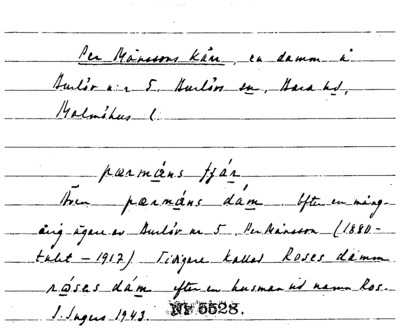 Per Månssons Kärr, en damm å
Burlöv n:r 5, Burlövs sn, Bara hd,
Malmöhus l.
pærmåns tjár
Även pærmåns dám. Efter en mång-
årig ägare av Burlöv nr 5, Per Månsson (1880-
talet – 1917) Tidigare kallad Roses damm
róses dám efter en husman vid namn Ros.
I. Ingers 1943.
№ 5528.